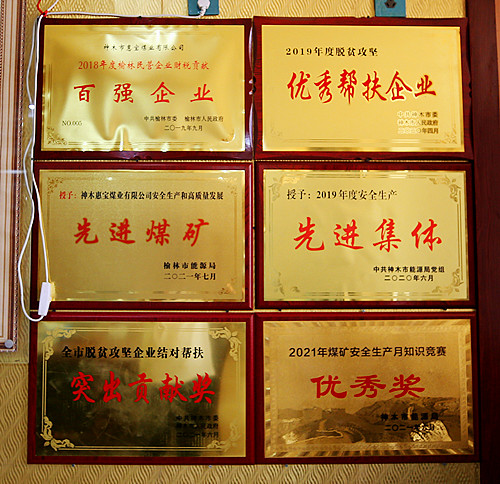 神木市惠宝煤业有限公司
2018年度榆林民营企业财税贡献
百强企业
NO.005
中共榆林市委 榆林市人民政府
二〇一九年九月
2019年度脱贫攻坚
优秀帮扶企业
中共神木市委
神木市人民政府
二〇二〇年四月
授予：神木惠宝煤业有限公司安全生产和高质量发展
先进煤矿
榆林市能源局
二〇二一年七月
授予：2019年度安全生产
先进集体
中共神木市能源局党组
二〇二〇年六月
全市脱贫攻坚企业结对帮扶
突出贡献奖
中共神木市委
神木市人民政府
二〇二一年六月
2021年煤矿安全生产月知识竞赛
优秀奖
神木市能源局
二〇二一年六月